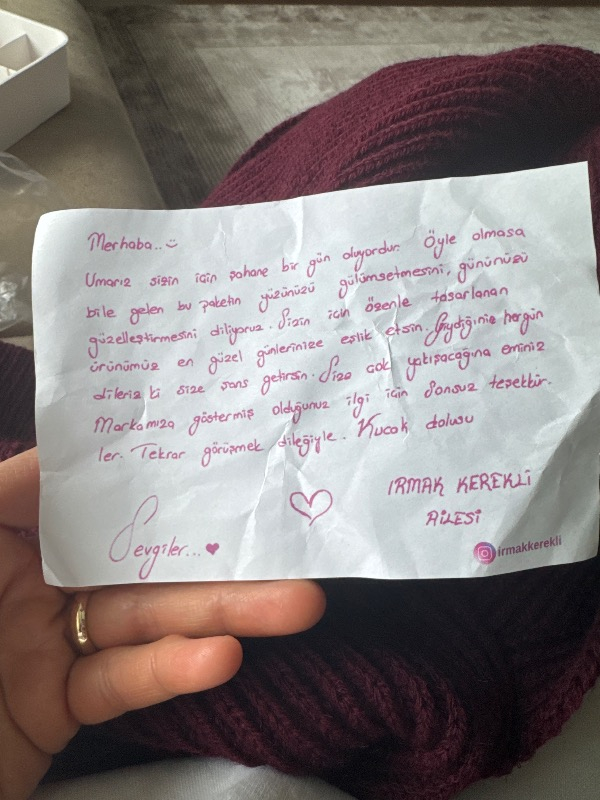 Merhaba.. :)
Umarız sizin için şahane bir gün oluyordur. Öyle olmasa
bile gelen bu paketin yüzünüzü gülümsetmesini, gününüzü
güzelleştirmesini diliyoruz. Sizin için özenle tasarlanan
ürünümüz en güzel günlerinize eşlik etsin. Giydiğiniz hergün
dileriz ki size şans getirsin. Size çok yakışacağına eminiz
Markamıza göstermiş olduğunuz ilgi için Sonsuz teşekkür-
ler. Tekrar görüşmek dileğiyle. Kucak dolusu
Sevgiler... ♥
IRMAK KEREKLİ
AİLESİ
irmakkerekli